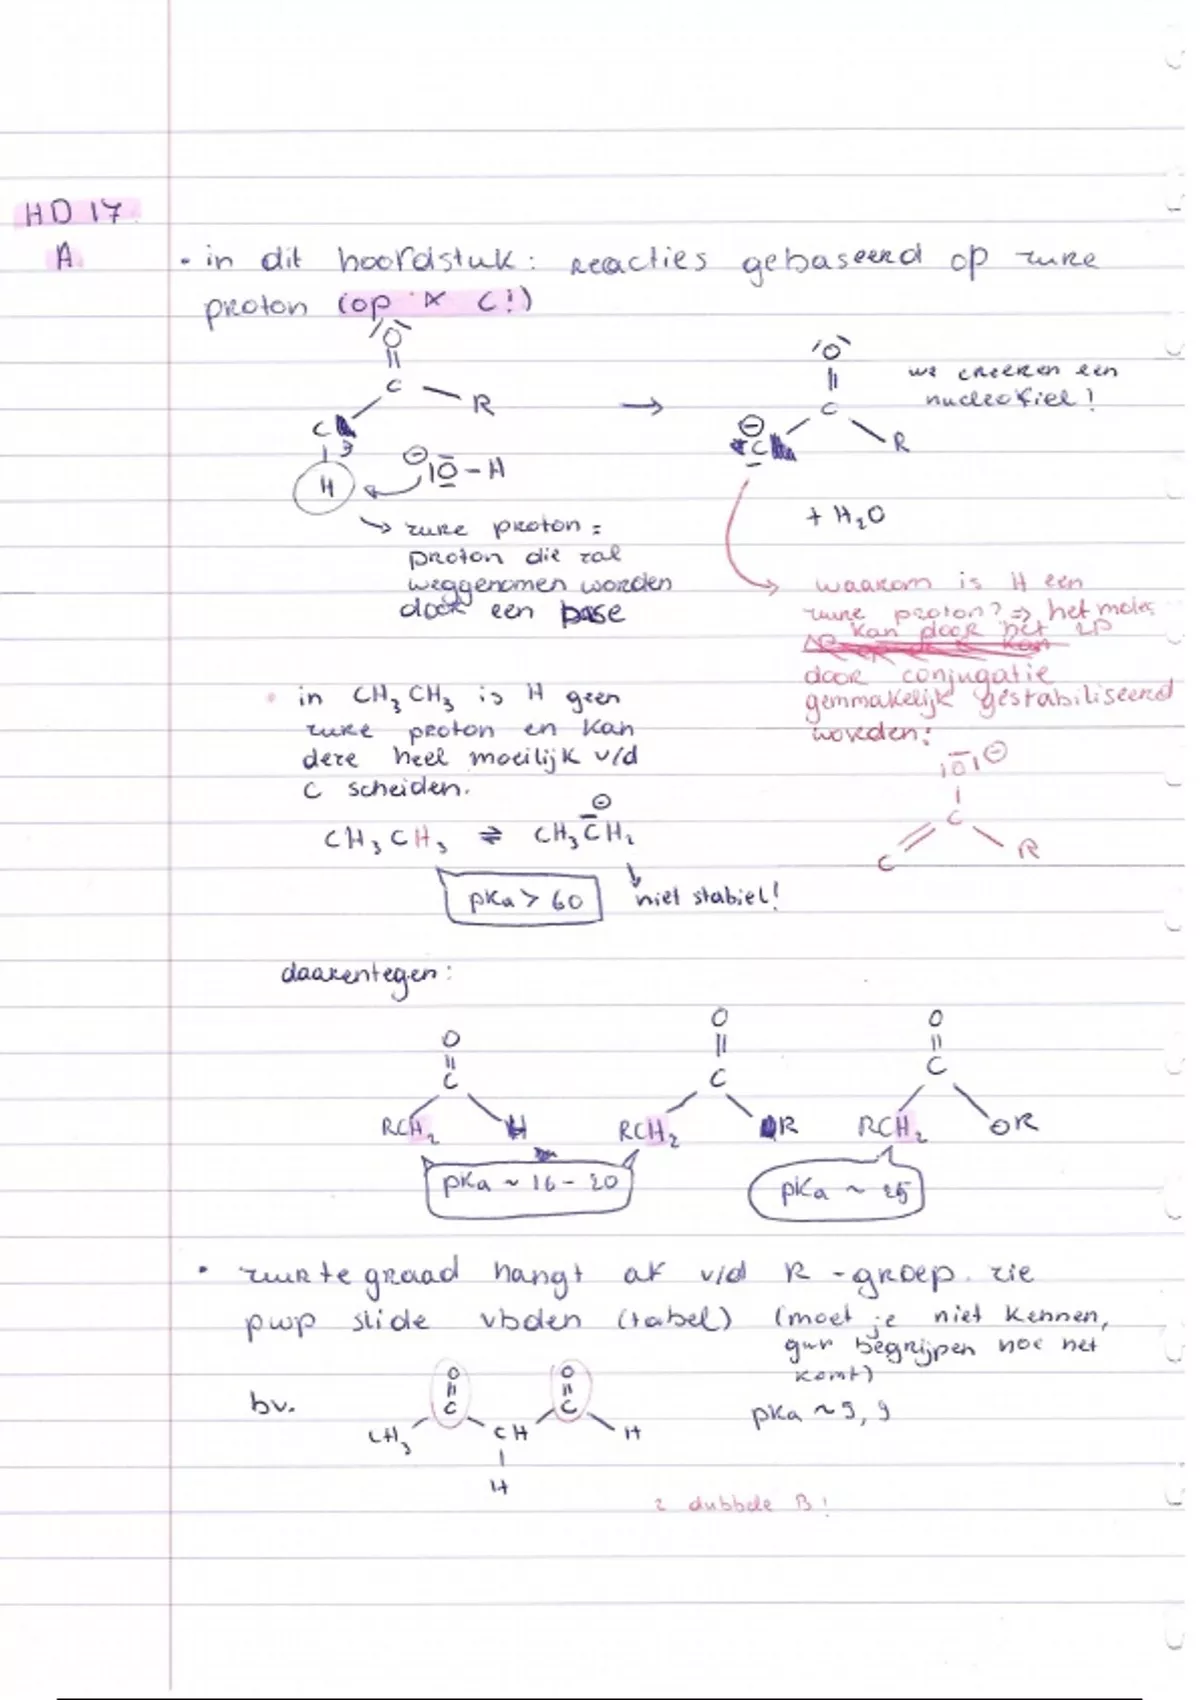 HD 17
A
• in dit hoofdstuk: reacties gebaseerd op zure
proton (op α C!)
O
C
R
C
H
O - H
→
O
C
R
C
+ H₂O
we creëeren een
nucleofiel!
→ zure proton =
proton die zal
weggenomen worden
door een base
waarom is H een
zure proton? ⇒ het molec
kan door het LP
door conjugatie
gemmakelijk gestabiliseerd
worden:
|O|⊖
C
C
R
• in CH₃CH₃ is H geen
zure proton en kan
deze heel moeilijk v/d
C scheiden.
CH₃CH₃ ⇌ CH₃CH₂ ⊖
pKa > 60
niet stabiel!
daarentegen:
O
C
RCH₂ H
O
C
RCH₂ R
O
C
RCH₂ OR
pKa ~ 16 - 20
pKa ~ 25
• zuurtegraad hangt af v/d R-groep. zie
pwp slide vbden (tabel) (moet je niet kennen,
gwn begrijpen hoe het
komt)
bv.
O O
C C
CH₃ CH H
H
pKa ~ 5, 9
2 dubbele B!